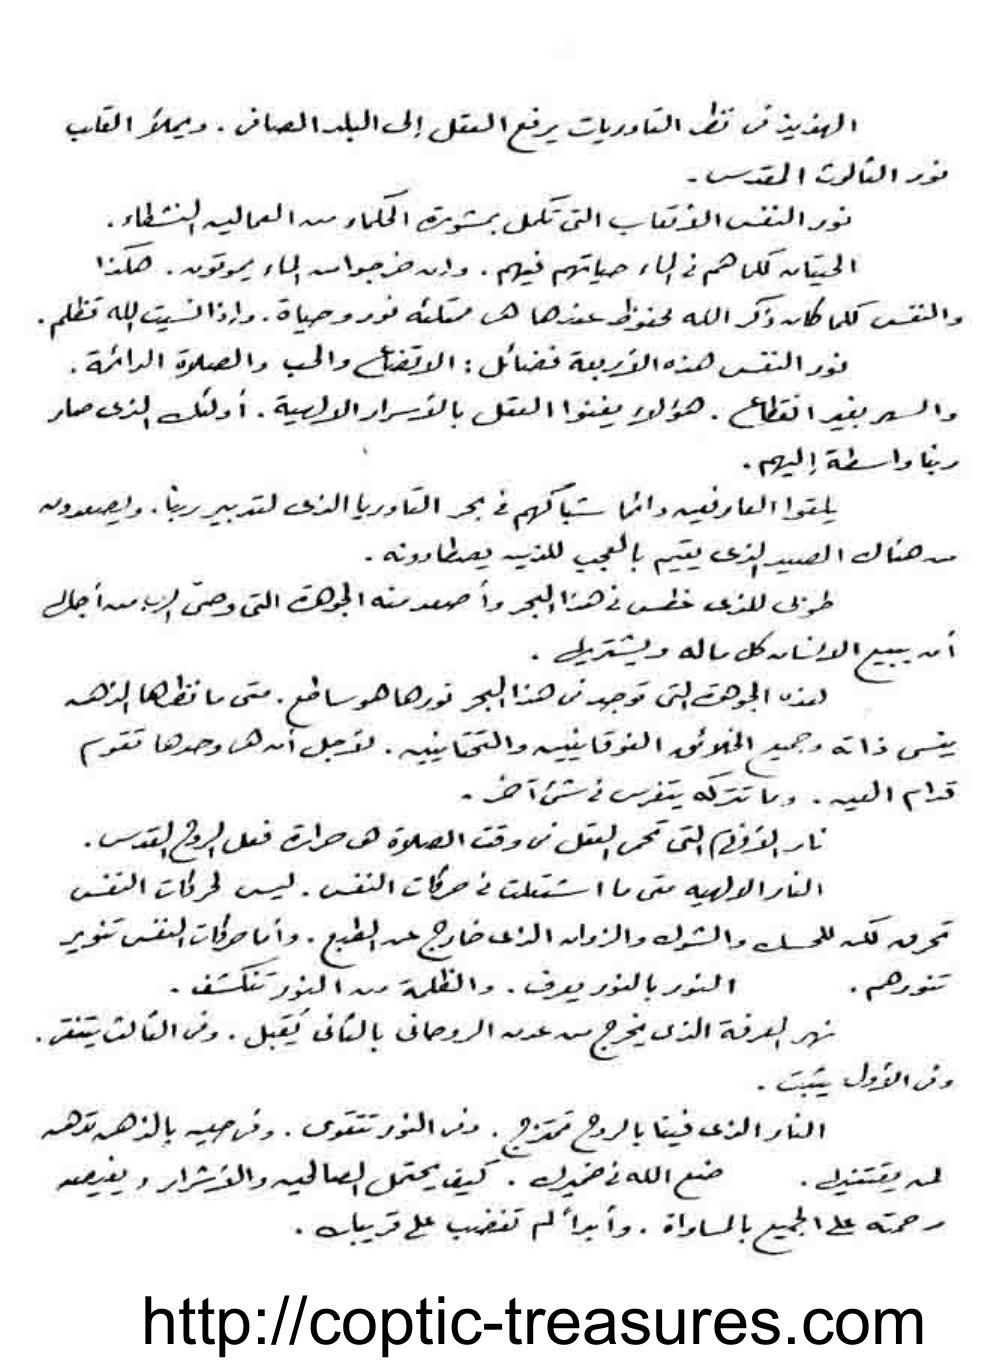 الهذيذ فى نظر التاوريات يرفع العقل إلى البلد الصافى . ويملأ القلب
نور الثالوث المقدس .
نور النفس الأتعاب التى تكمل بمشورة الحكماء من العمالين النشطاء .
الحيتان كلما هم فى الماء حياتهم فيهم . وإن خرجوا من الماء يموتون . هكذا
والنفس كلما كان ذكر الله محفوظ عندها هى ممتلئه نور وحياة . وإذا نسيت الله تظلم .
نور النفس هذه الأربعة فضائل : الاتضاع والحب والصلاة الدائمة .
والسهر بغير انقطاع . هؤلاء يغنوا العقل بالأسرار الالهية . أولئك الذى صار
ربنا واسطة إليهم .
يلقوا العارفين دائما شباكهم فى بحر التاوريا الذى لتدبير ربنا . ويصعدون
من هناك الصيد الذى يقيم بالعجب للذين يصطادونه .
طوبى للذى غطس فى هذا البحر وأصعد منه الجوهرة التى وصىّ الرب من أجلها
أن يبيع الانسان كل ماله ويشتريها .
لهذه الجوهرة التى توجد فى هذا البحر نورها هو ساطع . متى ما نظرها الذهن
ينسى ذاته وجميع الخلائق الفوقانيين والتحتانيين . لأجل أن هى وحدها تقوم
قدام العين . وما تتركه يتفرس فى شئ آخر .
نار الأفرام التى تحمى العقل فى وقت الصلاة هى حرارة فعل الروح القدس .
النار الالهيه متى ما اشتعلت فى حركات النفس . ليس لحركات النفس
تحرق لكن للحسك والشوك والزوان الذى خارج عن الطبع . وأما حركات النفس تنوير
تنورهم . النور بالنور يعرف . والظلمة من النور تنكشف .
نهر المعرفة الذى يخرج من عدن الروحانى بالثانى يُقبل . وفى الثالث يتنقى .
وفى الأول يثبت .
النار الذى فينا بالروح تمتزج . وفى النور تتقوى . وفى حين بالذهن توهب
لمن يقتنيها . ضع الله فى ضميرك . كيف يحتمل الصالحين والأشرار ويفيض
رحمته على الجميع بالمساواة . وأبداً لم تغضب على قريبك .
http://coptic-treasures.com